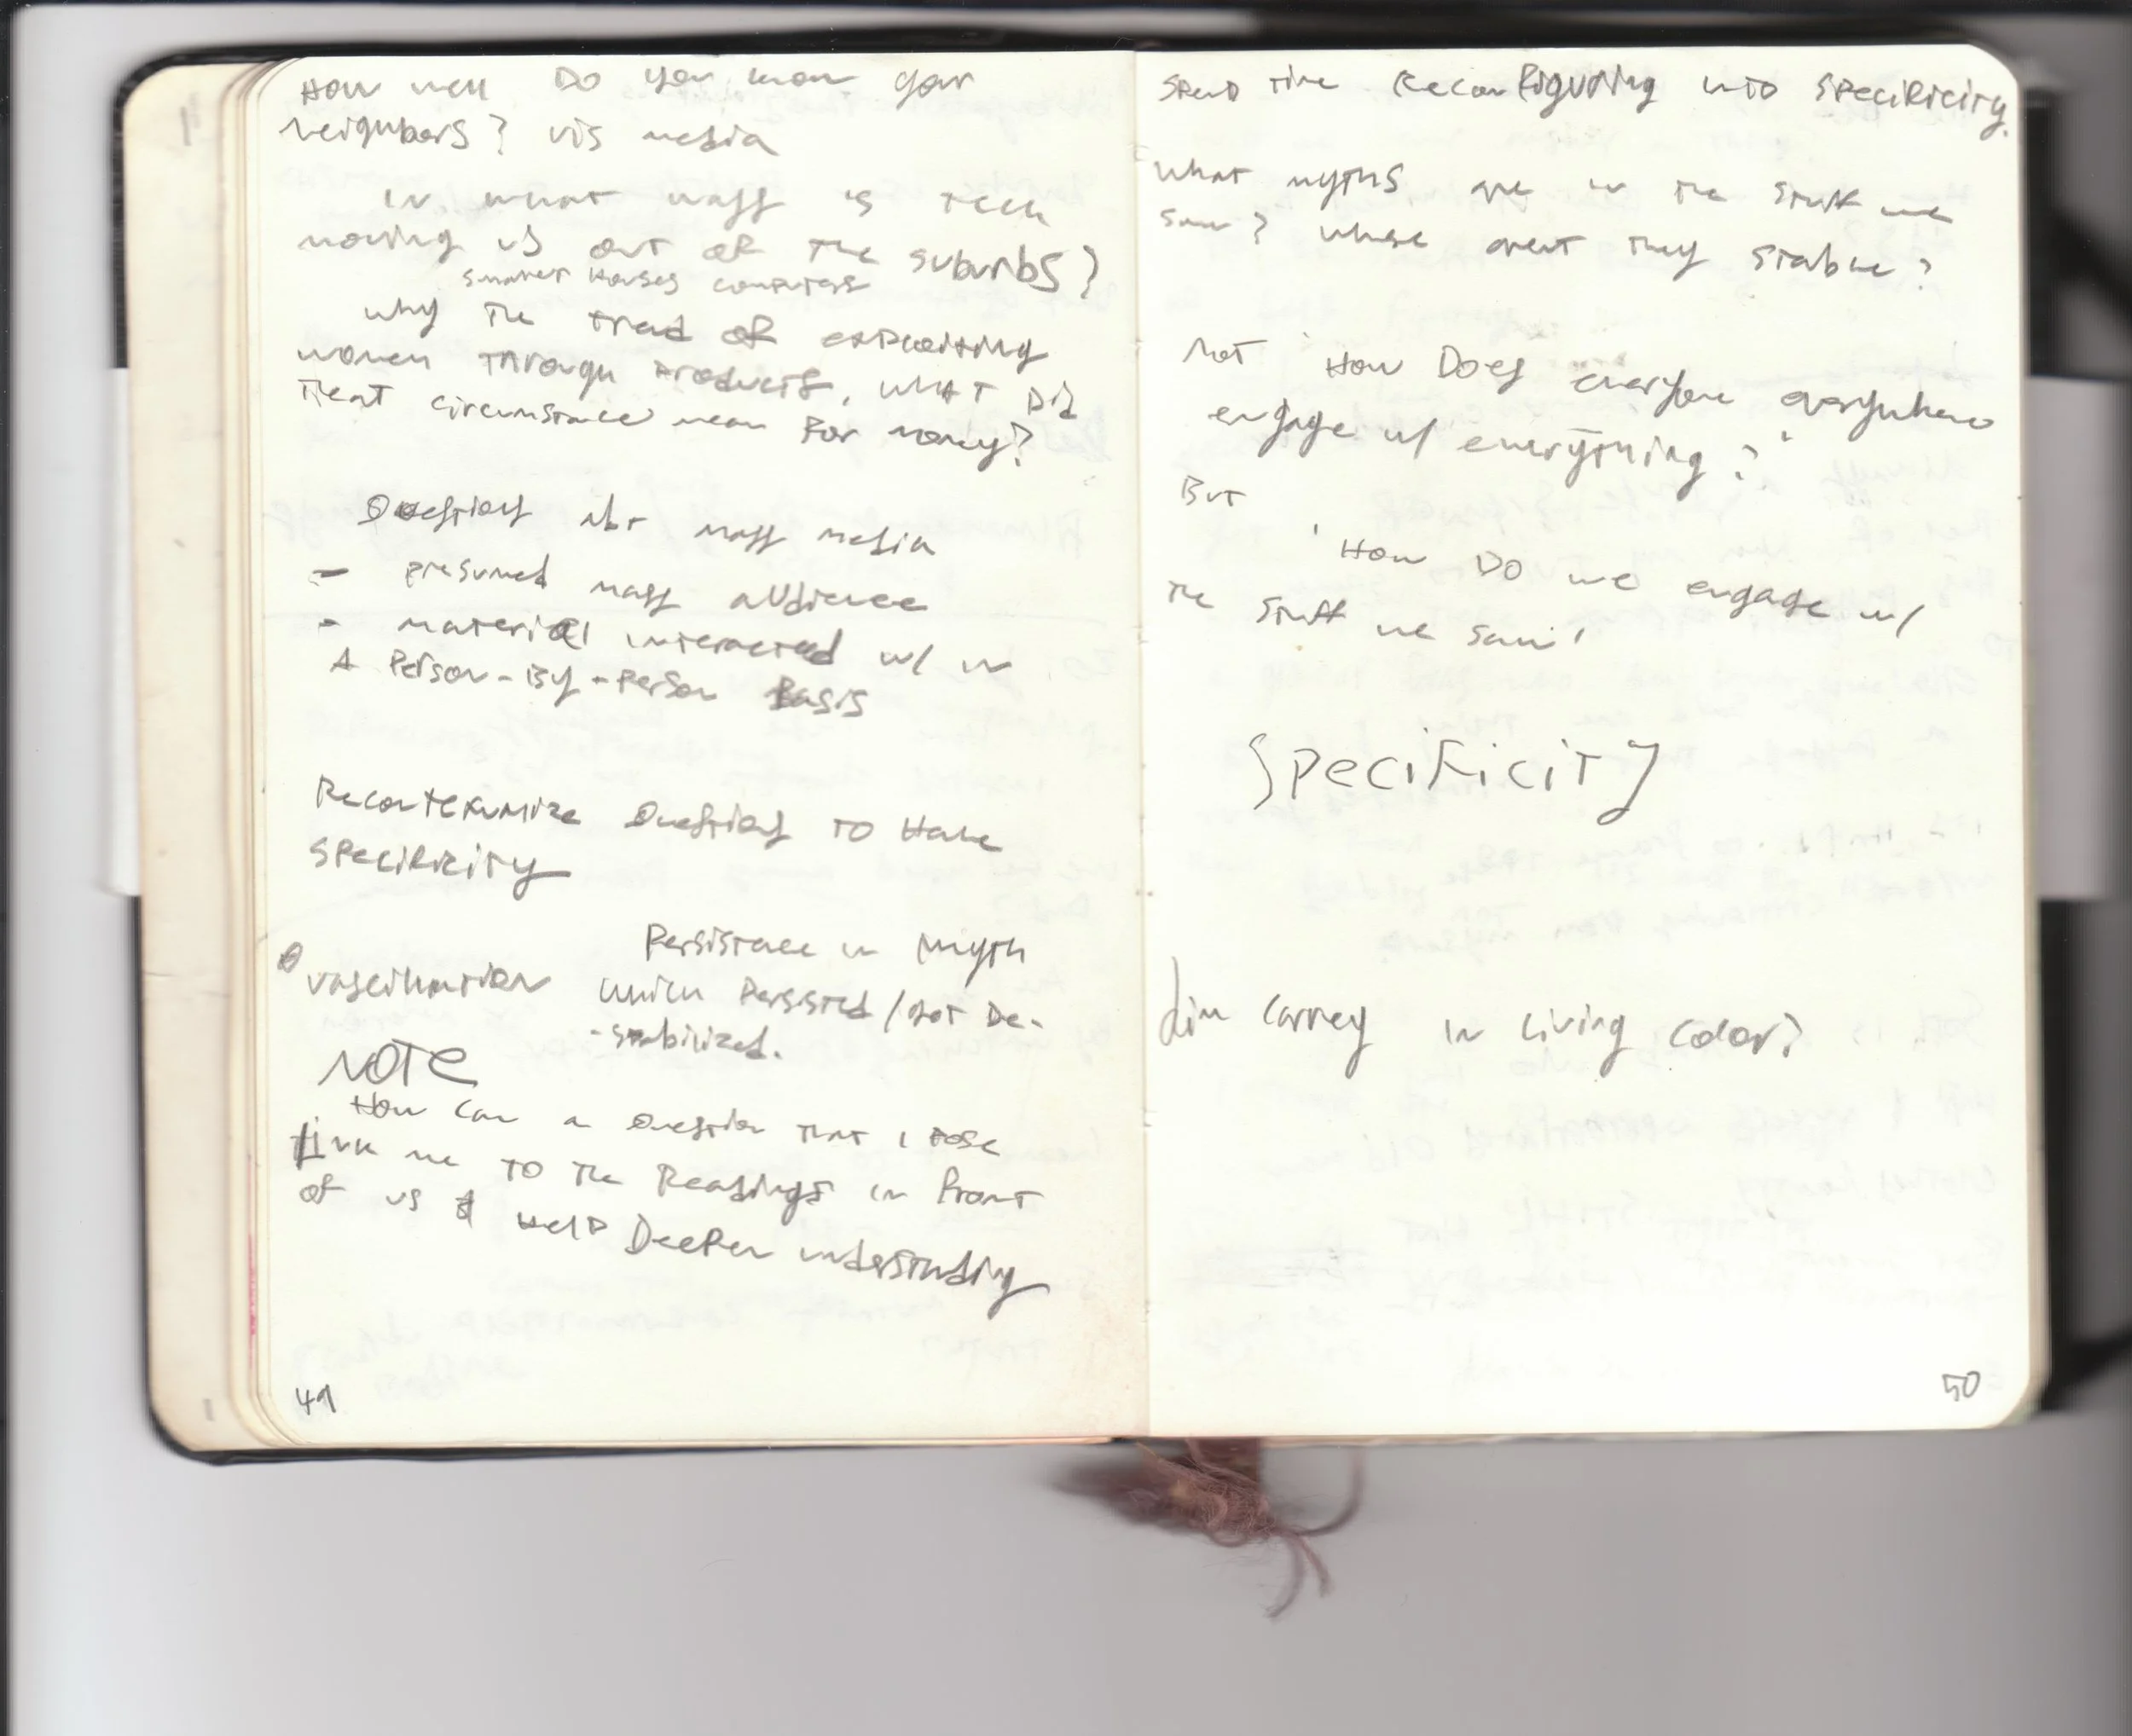 How well Do you know your
neighbors? vis media
in what ways is tech
moving us out of the suburbs?
smaller Houses computers
why the trend of exploiting
women through products, what did
that circumstance mean for money?
Questions abt mass media
- presumed mass audience
- material interacted w/ in
A Person-By-Person Basis
Recontextualize Questions to Have
specificity
Persistence in myth
vascillation which Persisted / got De-
-stabilized.
NOTE
How can a question that I pose
link me to the Readings in front
of us & Help Deepen understanding
49
spend time Reconfiguring into specificity.
what myths are in the stuff we
saw? where arent they stable?
Not "How Does everyone everywhere
engage w/ everything?"
But
'How Do we engage w/
the stuff we saw'
Specificity
Jim Carrey in Living Color?
50